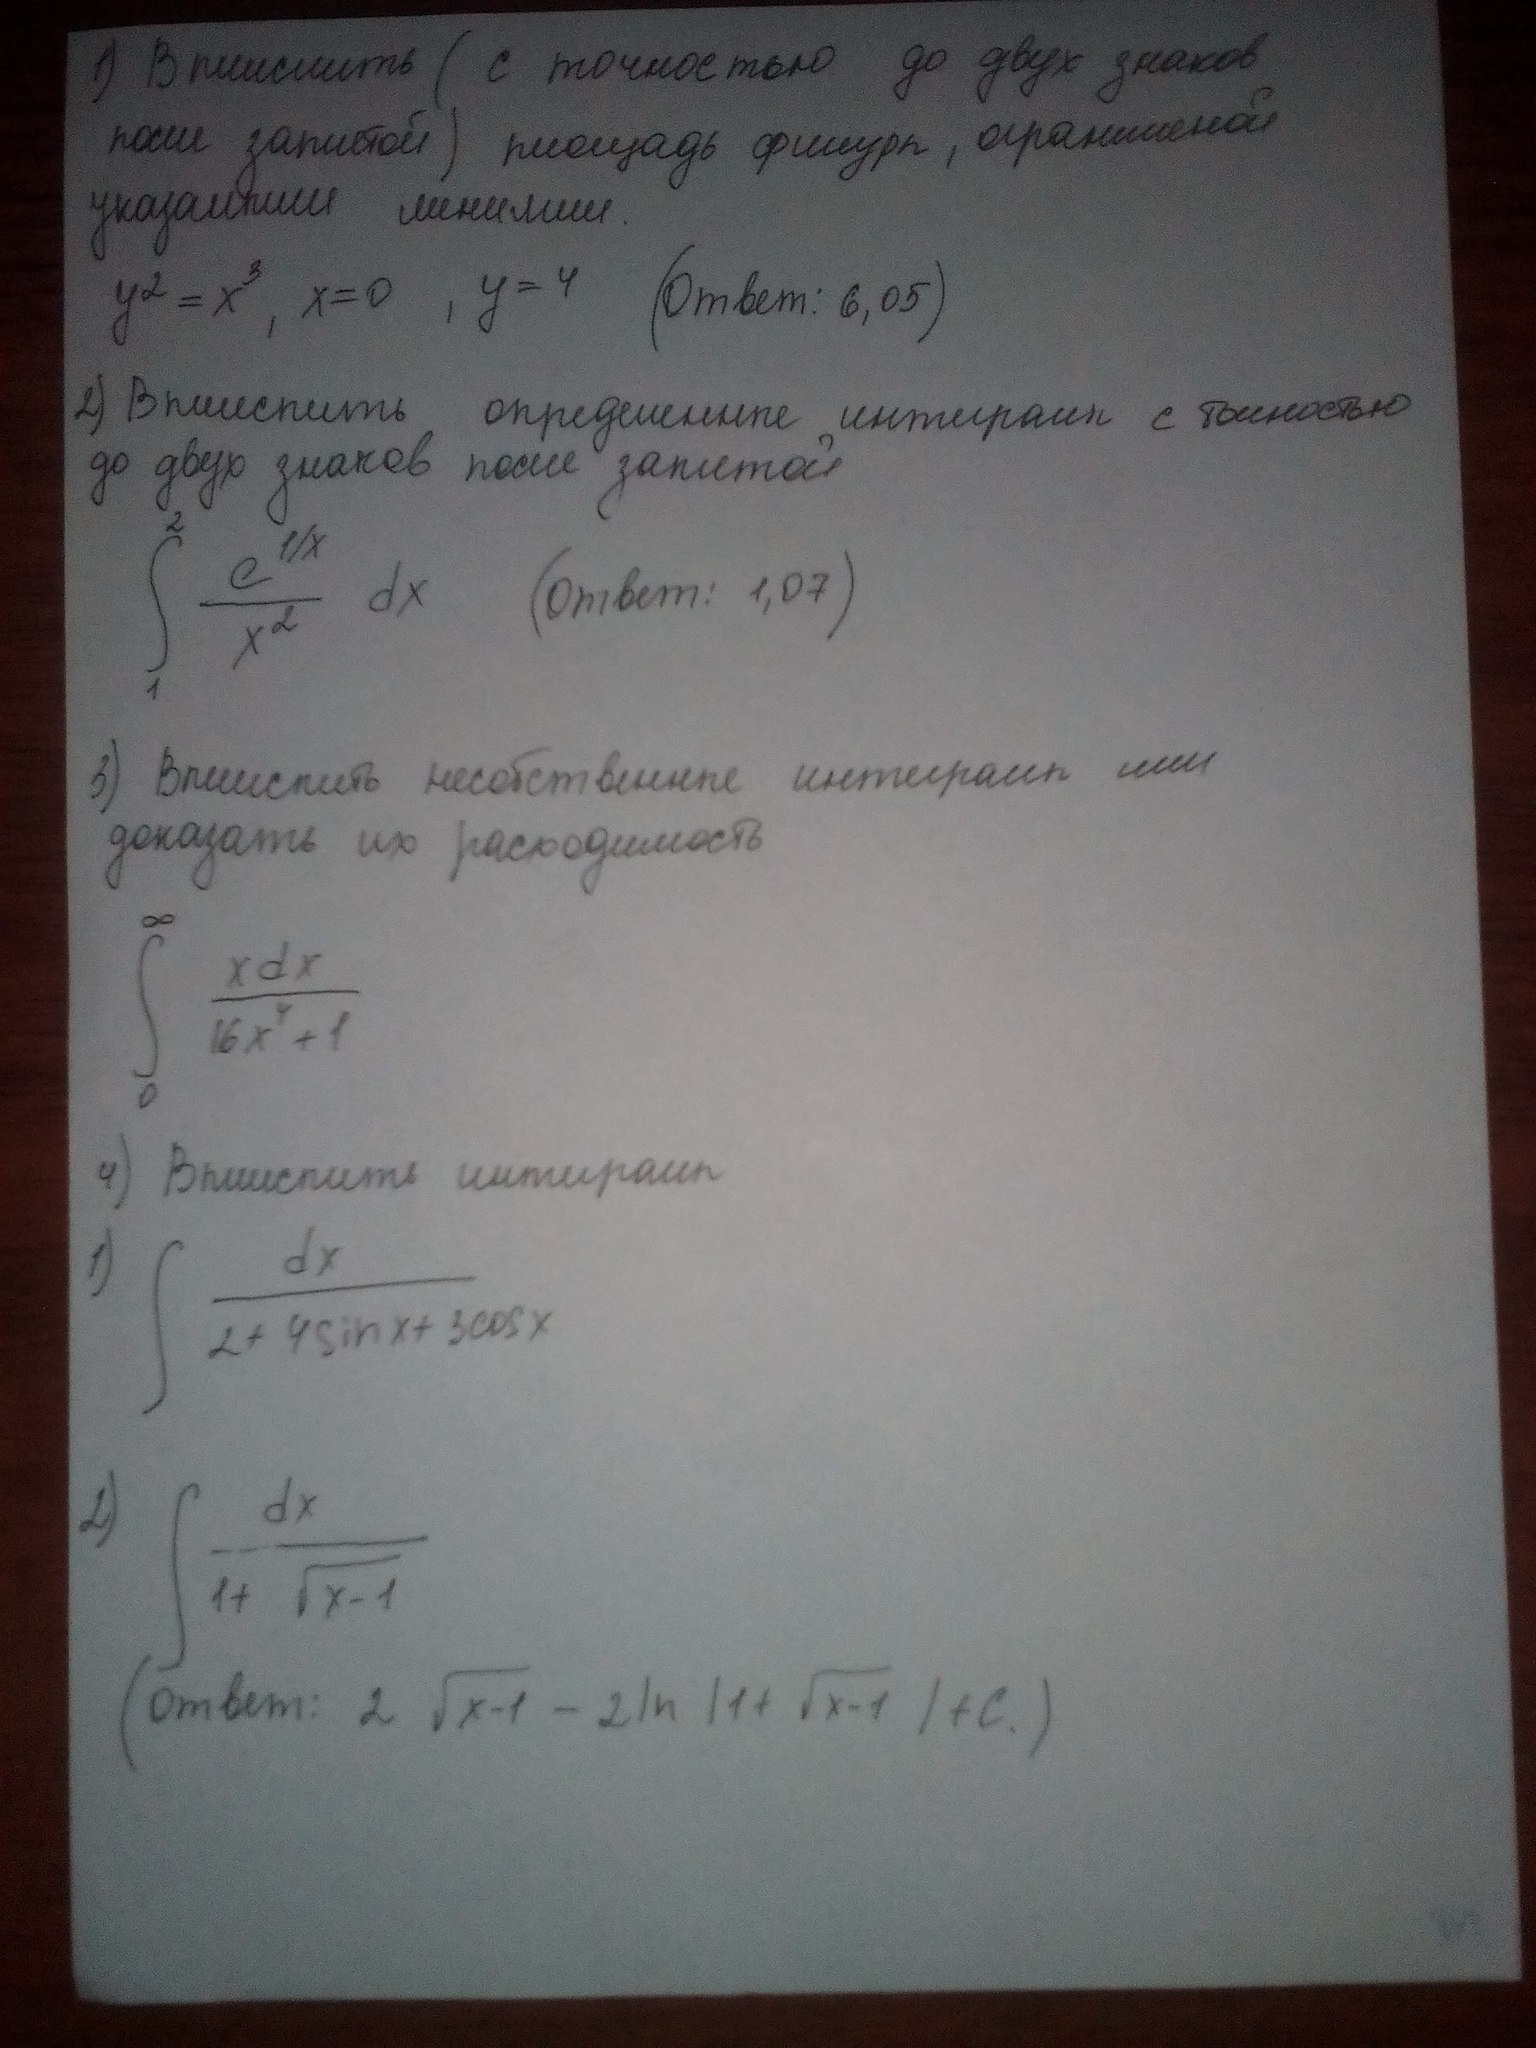 1) Вычислить (с точностью до двух знаков
после запятой) площадь фигуры, ограниченой
указанными линиями.
y² = x³, x=0, y=4 (Ответ: 6,05)
2) Вычислить определенные интегралы с точностью
до двух знаков после запятой
∫₁² e^(1/x) / x² dx (Ответ: 1,07)
3) Вычислить несобственные интегралы или
доказать их расходимость
∫₀^∞ xdx / (16x⁴+1)
4) Вычислить интегралы
1) ∫ dx / (2+4sinx+3cosx)
2) ∫ dx / (1+√(x-1))
(Ответ: 2√(x-1) - 2ln|1+√(x-1)|+C.)